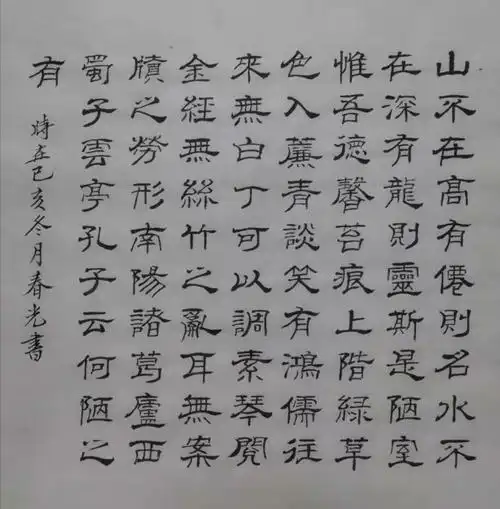 山不在高有僊則名水不
在深有龍則靈斯是陋室
惟吾德馨苔痕上階緑草
色入簾青談笑有鴻儒往
來無白丁可以調素琴閱
金經無絲竹之亂耳無案
牘之勞形南陽諸葛廬西
蜀子雲亭孔子云何陋之
有
時在己亥冬月春光書